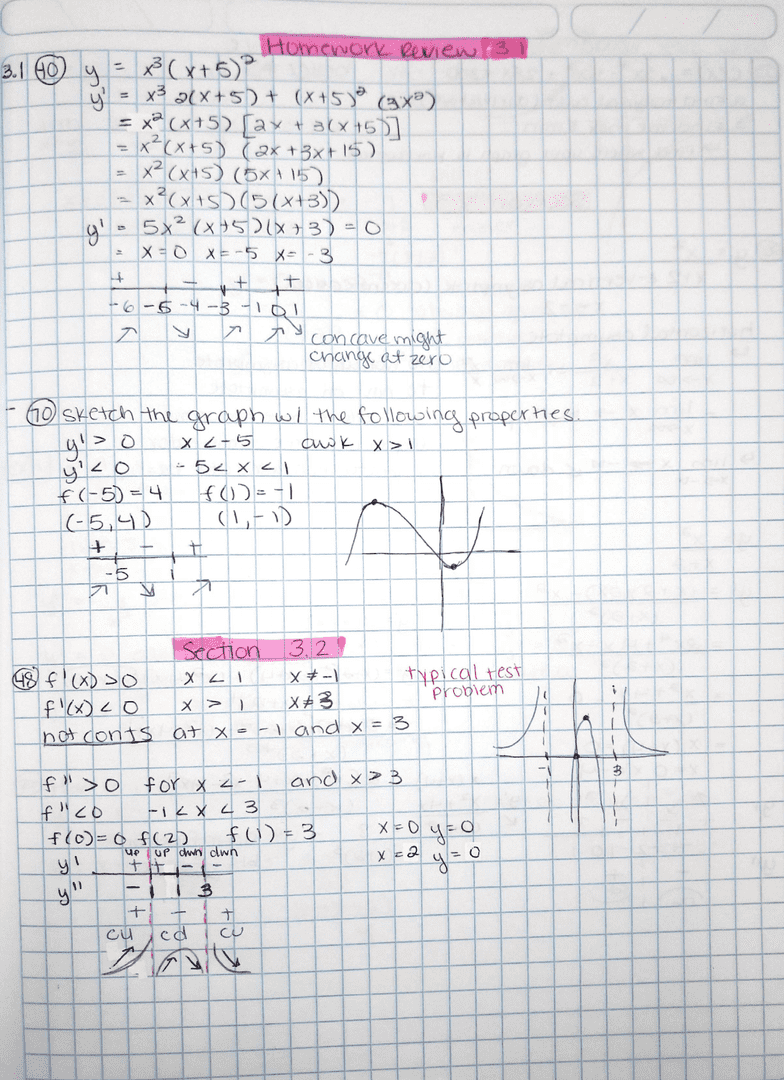 Homework Review 3.1
3.1 (40) y = x³(x+5)²
y' = x³ 2(x+5) + (x+5)² (3x²)
= x²(x+5) [2x + 3(x+5)]
= x²(x+5) (2x+3x+15)
= x²(x+5) (5x+15)
= x²(x+5)(5(x+3))
y' = 5x²(x+5)(x+3) = 0
= x=0 x=-5 x=-3
+ - + +
-6 -5 -4 -3 -1 0 1
↗ ↘ ↗ ↗ ↘ concave might
change at zero
- (70) sketch the graph w/ the following properties.
y' > 0 x < -5 x > 1
y' < 0 -5 < x < 1
f(-5) = 4 f(1) = -1
(-5,4) (1,-1)
+ - +
-5 1
↗ ↘ ↗
Section 3.2
(48) f'(x) > 0 x < 1 x ≠ -1
f'(x) < 0 x > 1 x ≠ 3
not conts at x = -1 and x = 3
typical test
problem
-1 3
f'' > 0 for x < -1 and x > 3
f'' < 0 -1 < x < 3
f(0) = 0 f(2) f(1) = 3
x=0 y=0
x=2 y=0
up up dwn dwn
y' + + - -
y'' - 1 1 3
+ - +
cu cd cu
↗ ↗ ↘ ↘